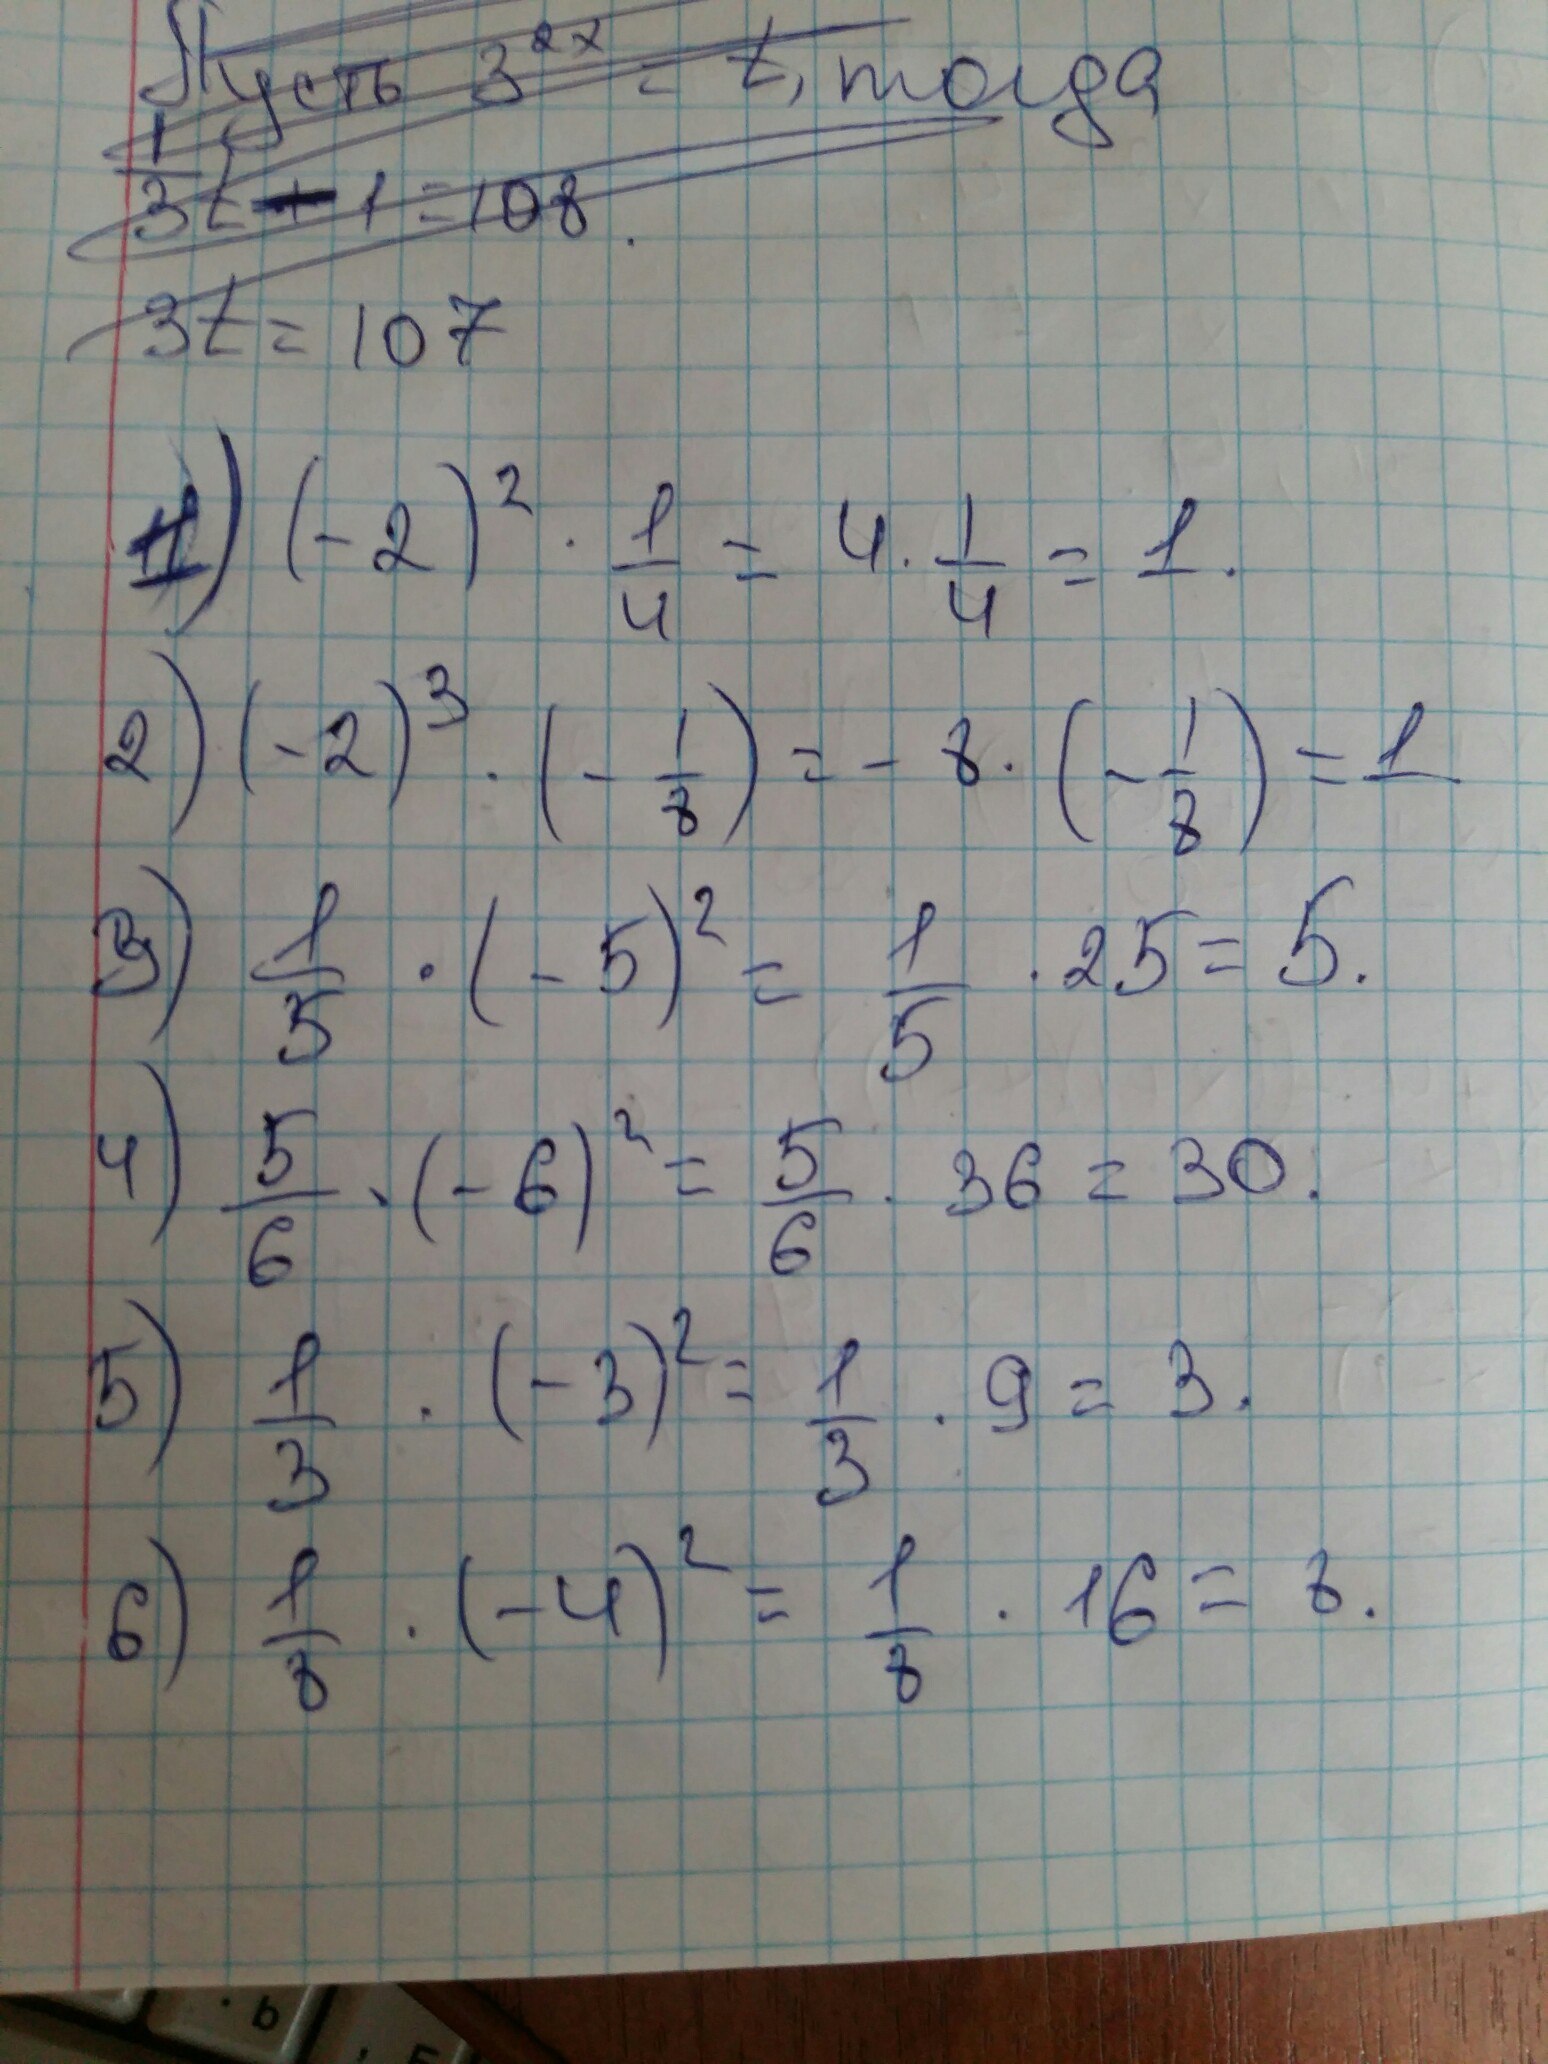 Пусть 3²ˣ = t, тогда
1/3 t - 1 = 108.
3t = 107
1) (-2)² · 1/4 = 4 · 1/4 = 1.
2) (-2)³ · (-1/8) = -8 · (-1/8) = 1
3) 1/5 · (-5)² = 1/5 · 25 = 5.
4) 5/6 · (-6)² = 5/6 · 36 = 30.
5) 1/3 · (-3)² = 1/3 · 9 = 3.
6) 1/8 · (-4)² = 1/8 · 16 = 8.
ь